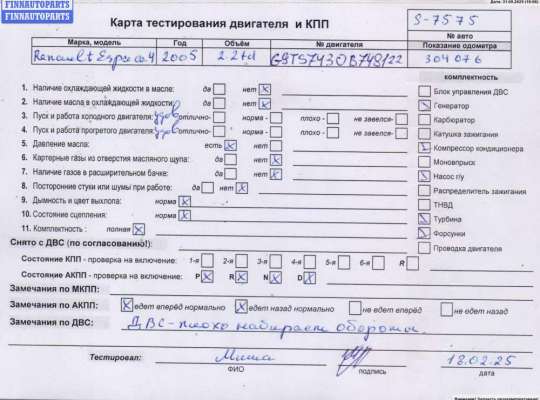 FINNAUTOPARTS
FINNAUTOPARTS
Карта тестирования двигателя и КПП
S-7575
№ авто
Марка, модель Год Объём № двигателя Показание одометра
Renault Espace 4 2005 2.2td 304076
комплектность
1. Наличие охлаждающей жидкости в масле: да нет X
2. Наличие масла в охлаждающей жидкости: да нет X
3. Пуск и работа холодного двигателя: удов отлично- норма - плохо - не завелся-
4. Пуск и работа прогретого двигателя: удов отлично- норма - плохо - не завелся-
5. Давление масла: есть X нет
6. Картерные газы из отверстия масляного щупа: да нет X
7. Наличие газов в расширительном бачке: да нет X
8. Посторонние стуки или шумы при работе: да нет X
9. Дымность и цвет выхлопа: норма X
10. Состояние сцепления: норма X
11. Комплектность : полная X
Блок управления ДВС
Генератор
Карбюратор
Катушка зажигания
Компрессор кондиционера
Моновпрыск
Насос г/у
Распределитель зажигания
ТНВД
Турбина
Форсунки
Проводка двигателя
Снято с ДВС (по согласованию!):
Состояние КПП - проверка на включение: 1-я 2-я 3-я 4-я 5-я 6-я R
Состояние АКПП - проверка на включение: P X R X N X D X
Замечания по МКПП:
Замечания по АКПП: X едет вперёд нормально X едет назад нормально не едет вперёд не едет назад
Замечания по ДВС: ДВС - плохо набирает обороты.
Тестировал: Миша 18.02.25
ФИО подпись дата